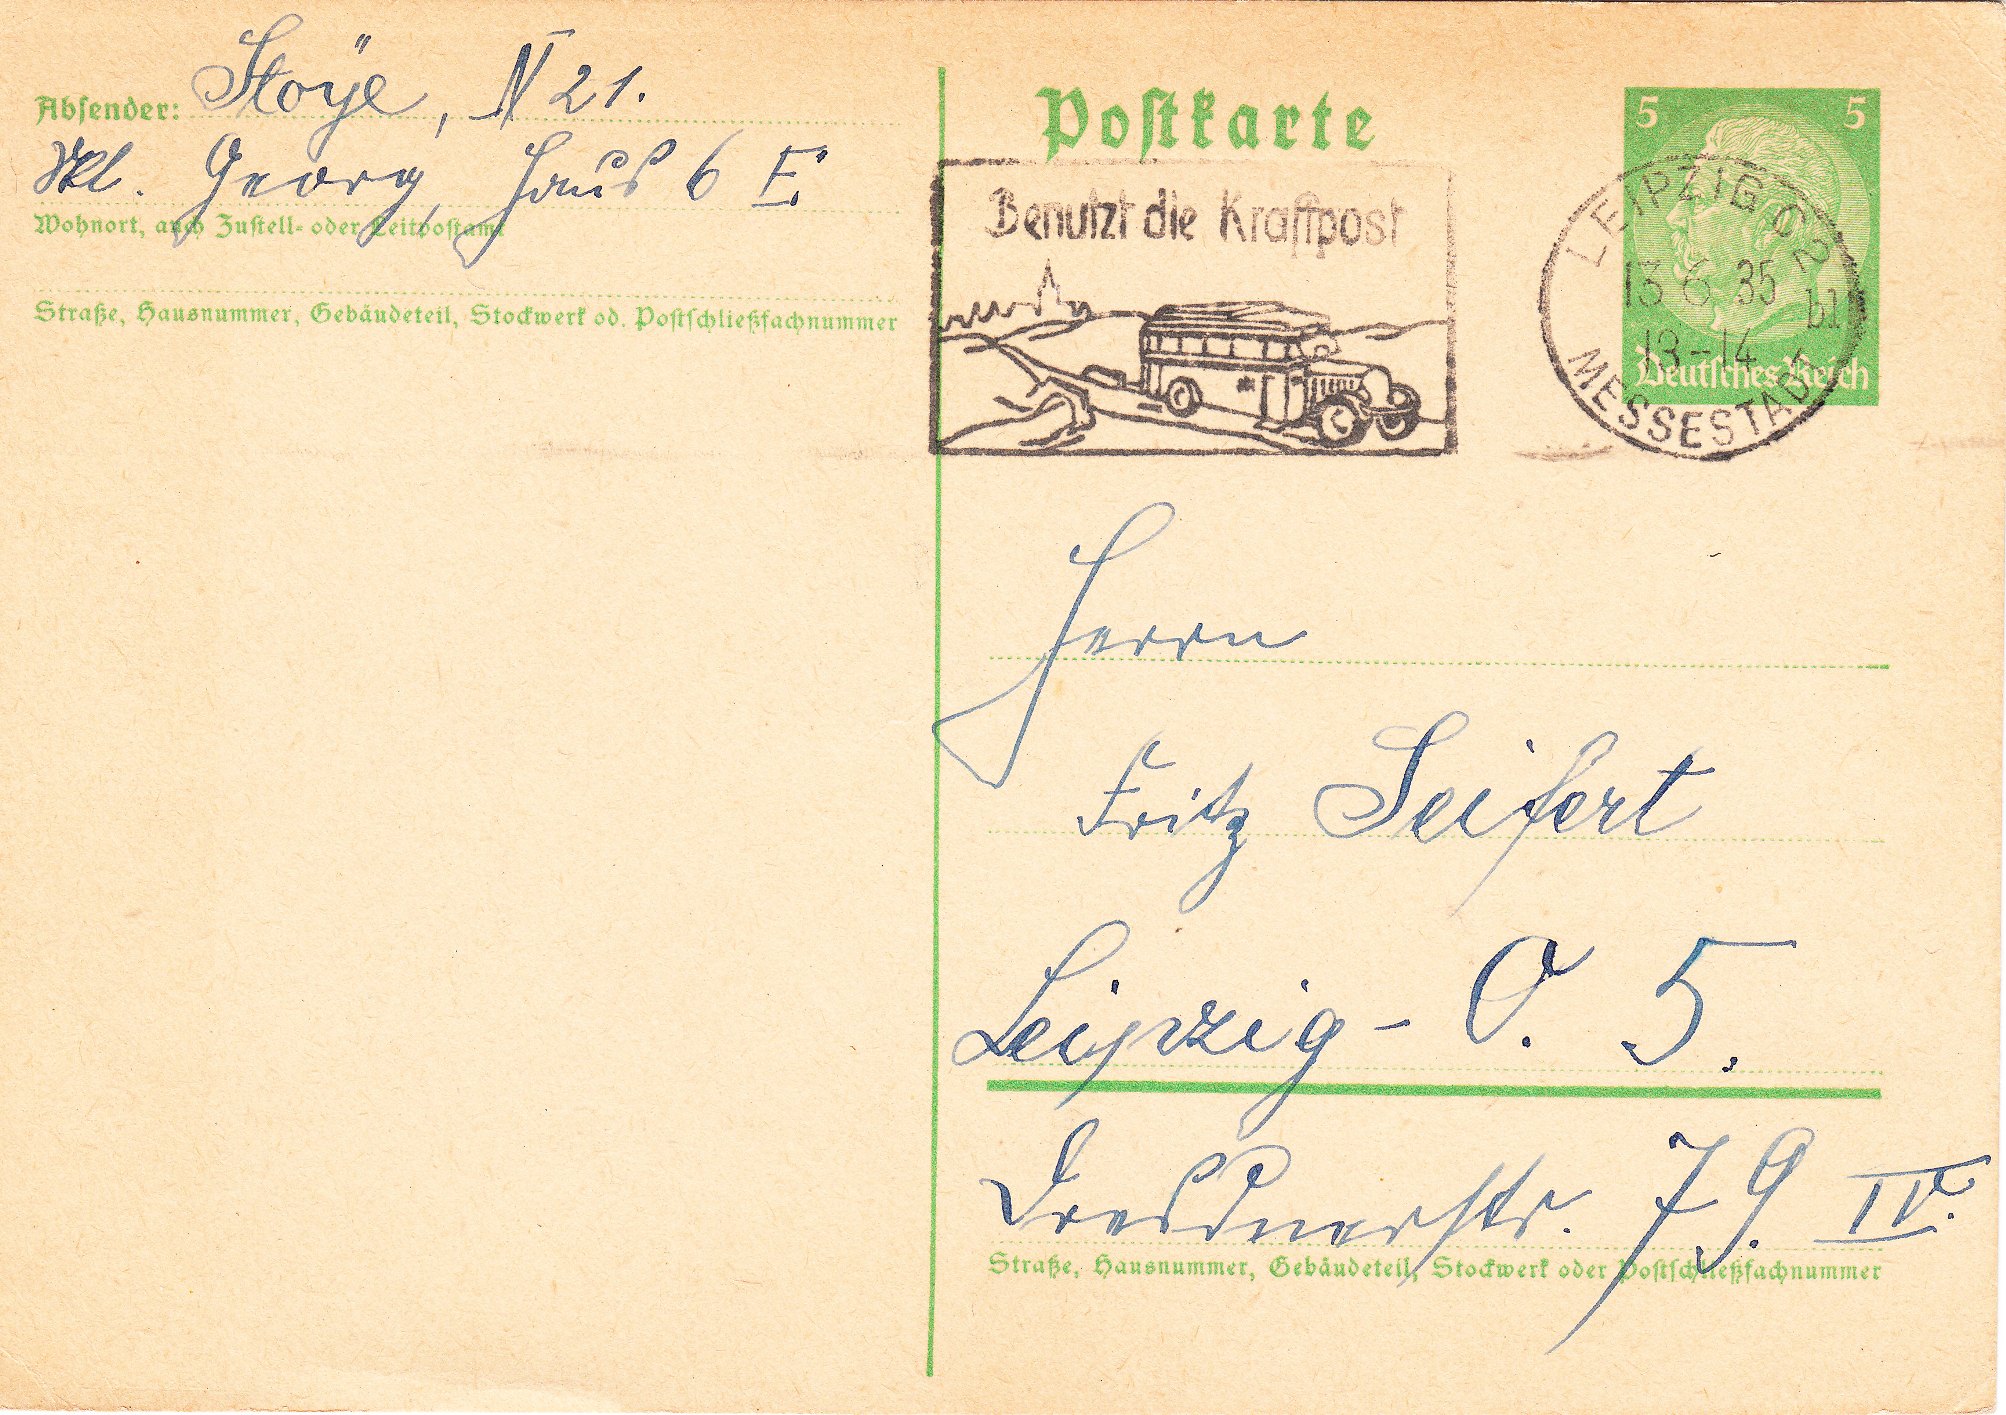 Absender: Stoÿe, N 21.
Kl. Georg, Haus 6 E.
Wohnort, auch Zustell- oder Leitpostamt
Straße, Hausnummer, Gebäudeteil, Stockwerk od. Postschließfachnummer
Postkarte
5 5
Deutsches Reich
Benutzt die Kraftpost
LEIPZIG C 2
13 6 35
13-14 b1
MESSESTADT
Herrn
Fritz Seifert
Leipzig - O. 5.
Dresdnerstr. 79 IV.
Straße, Hausnummer, Gebäudeteil, Stockwerk oder Postschließfachnummer